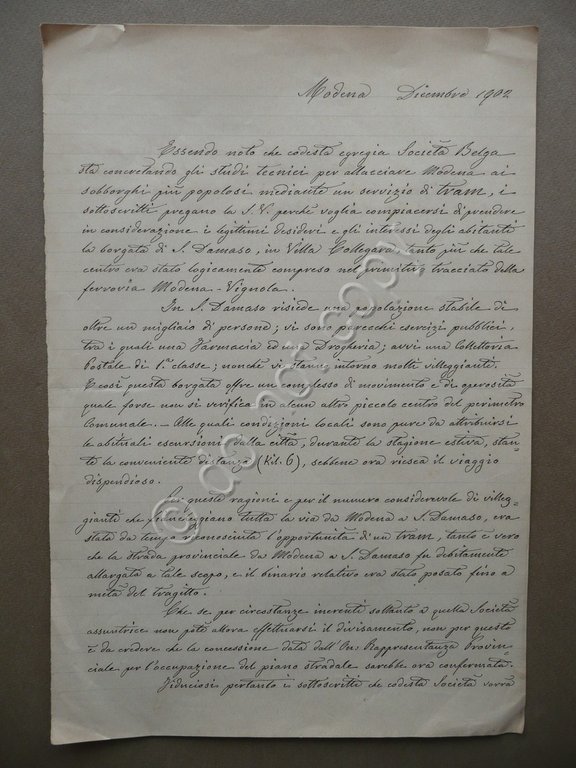 Modena Dicembre 1902
Essendo noto che codesta egregia Società Belga
sta concretando gli studi tecnici per allacciare Modena ai
sobborghi più popolosi mediante un servizio di tram, i
sottoscritti pregano la S. V. perché voglia compiacersi di prendere
in considerazione i legittimi desideri e gli interessi degli abitanti
la borgata di S. Damaso, in Villa Collegara, tanto più che tale
centro era stato logicamente compreso nel primitivo tracciato della
ferrovia Modena-Vignola.
In S. Damaso risiede una popolazione stabile di
oltre un migliaio di persone; vi sono parecchi esercizi pubblici,
tra i quali una Farmacia ed una Drogheria; avvi una Collettoria
Postale di 1ª classe; nonché vi stanno intorno molti villeggianti.
E così questa borgata offre un complesso di movimento e di operosità
quale forse non si verifica in alcun altro piccolo centro del perimetro
Comunale. — Alle quali condizioni locali sono pure da attribuirsi
le abituali escursioni dalla città, durante la stagione estiva, stan=
te la conveniente distanza (Kil. 6), sebbene ora riesca il viaggio
dispendioso.
Per queste ragioni e per il numero considerevole di villeg=
gianti che fiancheggiano tutta la via da Modena a S. Damaso, era
stata da tempo riconosciuta l'opportunità di un tram, tanto è vero
che la strada provinciale da Modena a S. Damaso fu debitamente
allargata a tale scopo, e il binario relativo era stato posato fino a
metà del tragitto.
Che se per circostanze inerenti soltanto a quella Società
assuntrice non poté allora effettuarsi il divisamento, non per questo
è da credere che la concessione data dall'On. Rappresentanza Provin=
ciale per l'occupazione del piano stradale sarebbe ora confermata.
Fiduciosi pertanto i sottoscritti che codesta Società vorrà